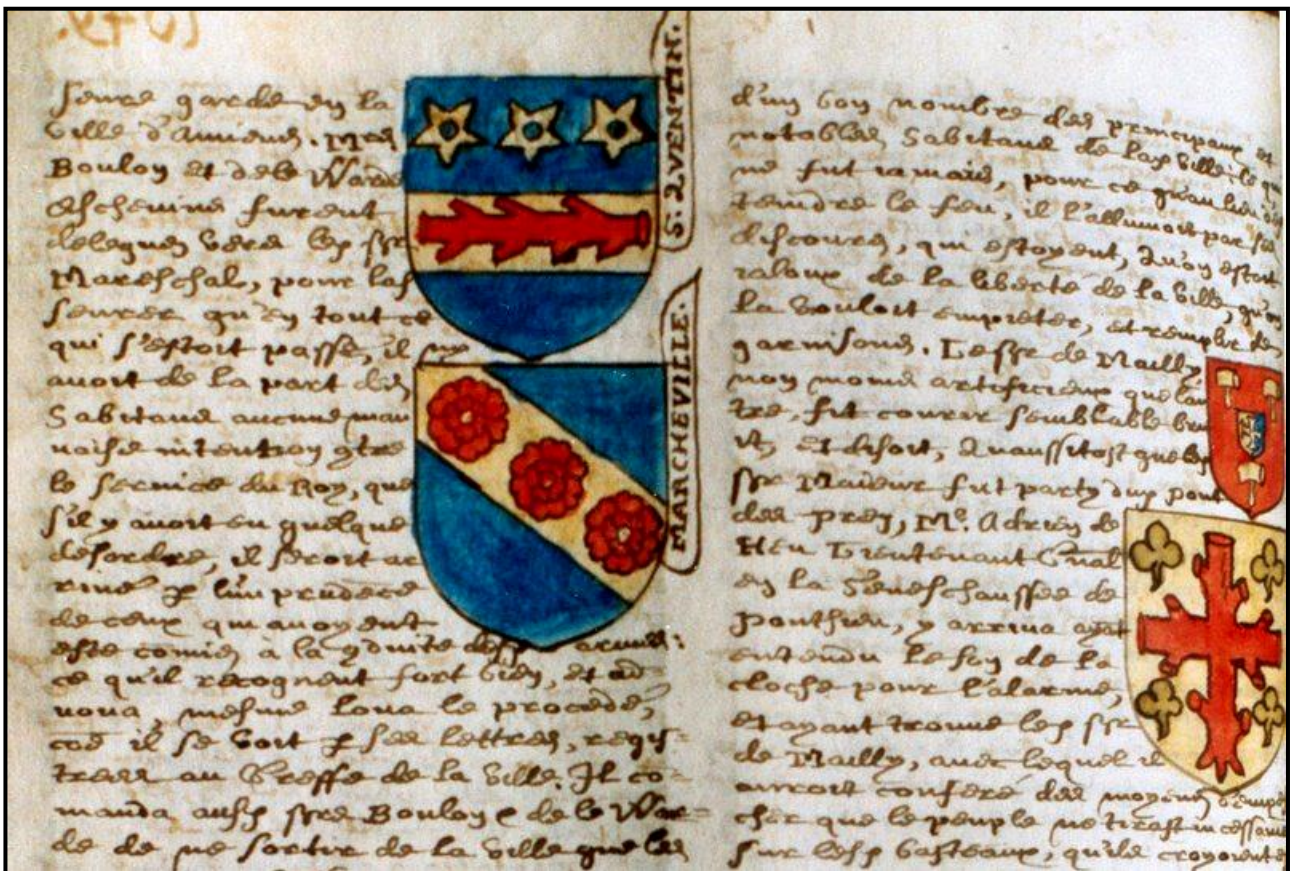 seure garde en la
ville d'Amiens. Mes
Boulon et de le Warde
Eschevins furent
deleguez vers led. ssr
Mareschal, pour l'as
seurer qu'en tout ce
qui s'estoit passé, il n'y
avoit de la part des
habitans aucune mau
vaise intention contre
le service du Roy, que
s'il y avoit eu quelque
desordre, il seroit ar
rivé p l'imprudece
de ceux qui avoyent
esté comis à la conduite armes:
ce qu'il recognent fort bien, et ad
voua, mesme loua le procedé,
coe il se voit p ses lettres, regis-
trees au Greffe de la ville. Il co-
manda ausd. ssrs Boulon & de le War-
de de ne sortir de la ville que les
S. QVENTIN.
MARCHEVILLE.
d'un bon nombre des principaux et
notables habitans de lad. ville: ce qui
ne fut jamais, pour ce qu'au lieu d'es
teindre le feu, il l'allumoit par ses
discours, qui estoyent, Qu'on estoit
jaloux de la liberté de la ville, qu'on
la vouloit empieter, et remplir de
garnisons. Led. ssr de Mailly
non moins artificieux que l'au
tre, fit courir semblable bru
it, Et disoit, Qu'aussitost que led.
ssr Maieur fut party dud. pont
des Prez, Me. Adrien de
Heu Lieutenant Gnal
en la Seneschaussée de
Ponthieu, y arriva ayat
entendu le son de la
cloche pour l'alarme,
et ayant trouvé led. ssr
de Mailly, avec lequel il
auroit conferé des moyens d'empes
cher que le peuple ne tirast incessamt
sur lesd. basteaux, qu'ils croyoient